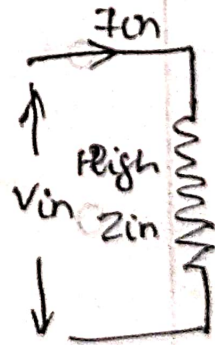 Iin
High
Vin
Zin